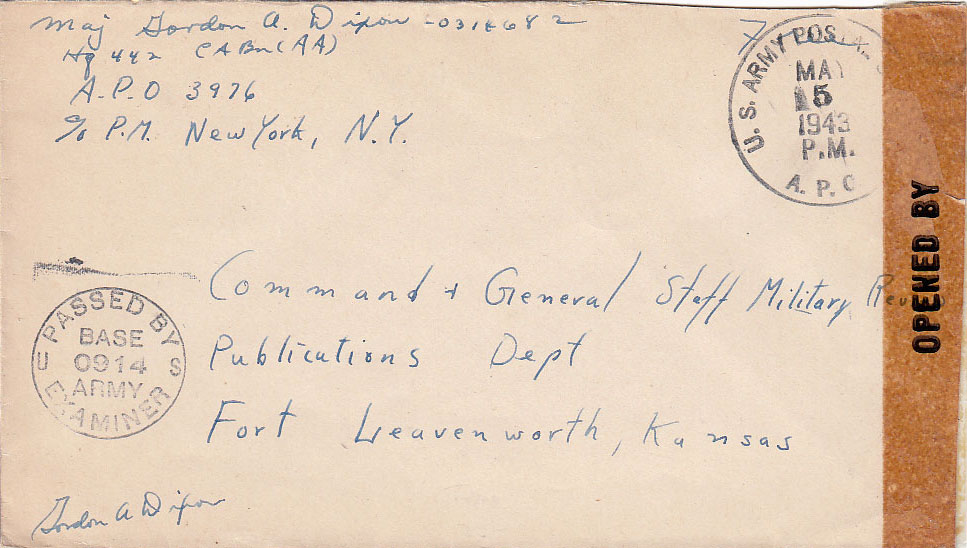 Maj Gordon A. Dixon - 0318682
Hq 442 CABn (AA)
A.P.O 3976
c/o P.M. New York, N.Y.
U. S. ARMY POSTAL
MAY
5
1943
P.M.
A. P. O
OPENED BY
PASSED BY
BASE
U 0914 S
ARMY
EXAMINER
Command + General Staff Military
Publications Dept
Fort Leavenworth, Kansas
Gordon A Dixon